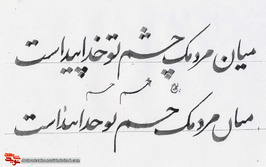 میان مردمک چشم تو خدا پیداست
چشم چشم
میاں مردمک حسم ٮو حدا ٮٮداست